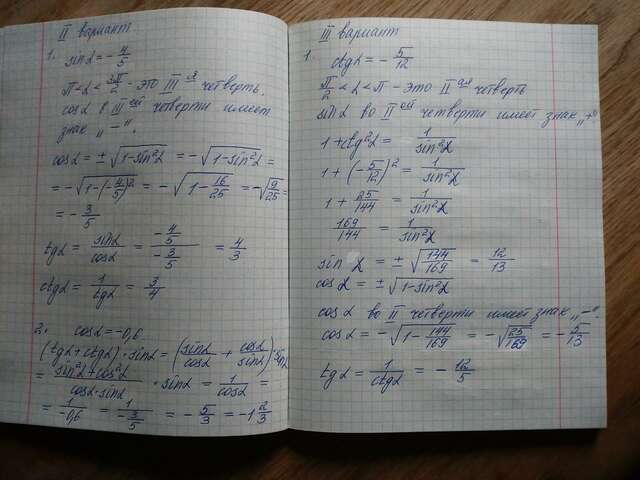 II вариант
1. sinα = - 4/5
π < α < 3π/2 - это III ая четверть.
cosα в III ей четверти имеет
знак „ - ".
cosα = ± √(1-sin²α) = - √(1-sin²α) =
= - √(1-(-4/5)²) = - √(1 - 16/25) = - √(9/25) =
= - 3/5
tgα = sinα/cosα = (-4/5)/(-3/5) = 4/3
ctgα = 1/tgα = 3/4
2. cosα = -0,6
(tgα + ctgα) · sinα = (sinα/cosα + cosα/sinα) · sinα
= (sin²α + cos²α)/(cosα · sinα) · sinα = 1/cosα =
= 1/(-0,6) = 1/(-3/5) = - 5/3 = -1 2/3
III вариант
1. ctgα = - 5/12
π/2 < α < π - это II ая четверть
sinα во II ой четверти имеет знак „+"
1 + ctg²α = 1/sin²α
1 + (-5/12)² = 1/sin²α
1 + 25/144 = 1/sin²α
169/144 = 1/sin²α
sin α = ± √(144/169) = 12/13
cosα = ± √(1-sin²α)
cosα во II четверти имеет знак „ - ".
cosα = - √(1 - 144/169) = - √(25/169) = - 5/13
tgα = 1/ctgα = - 12/5